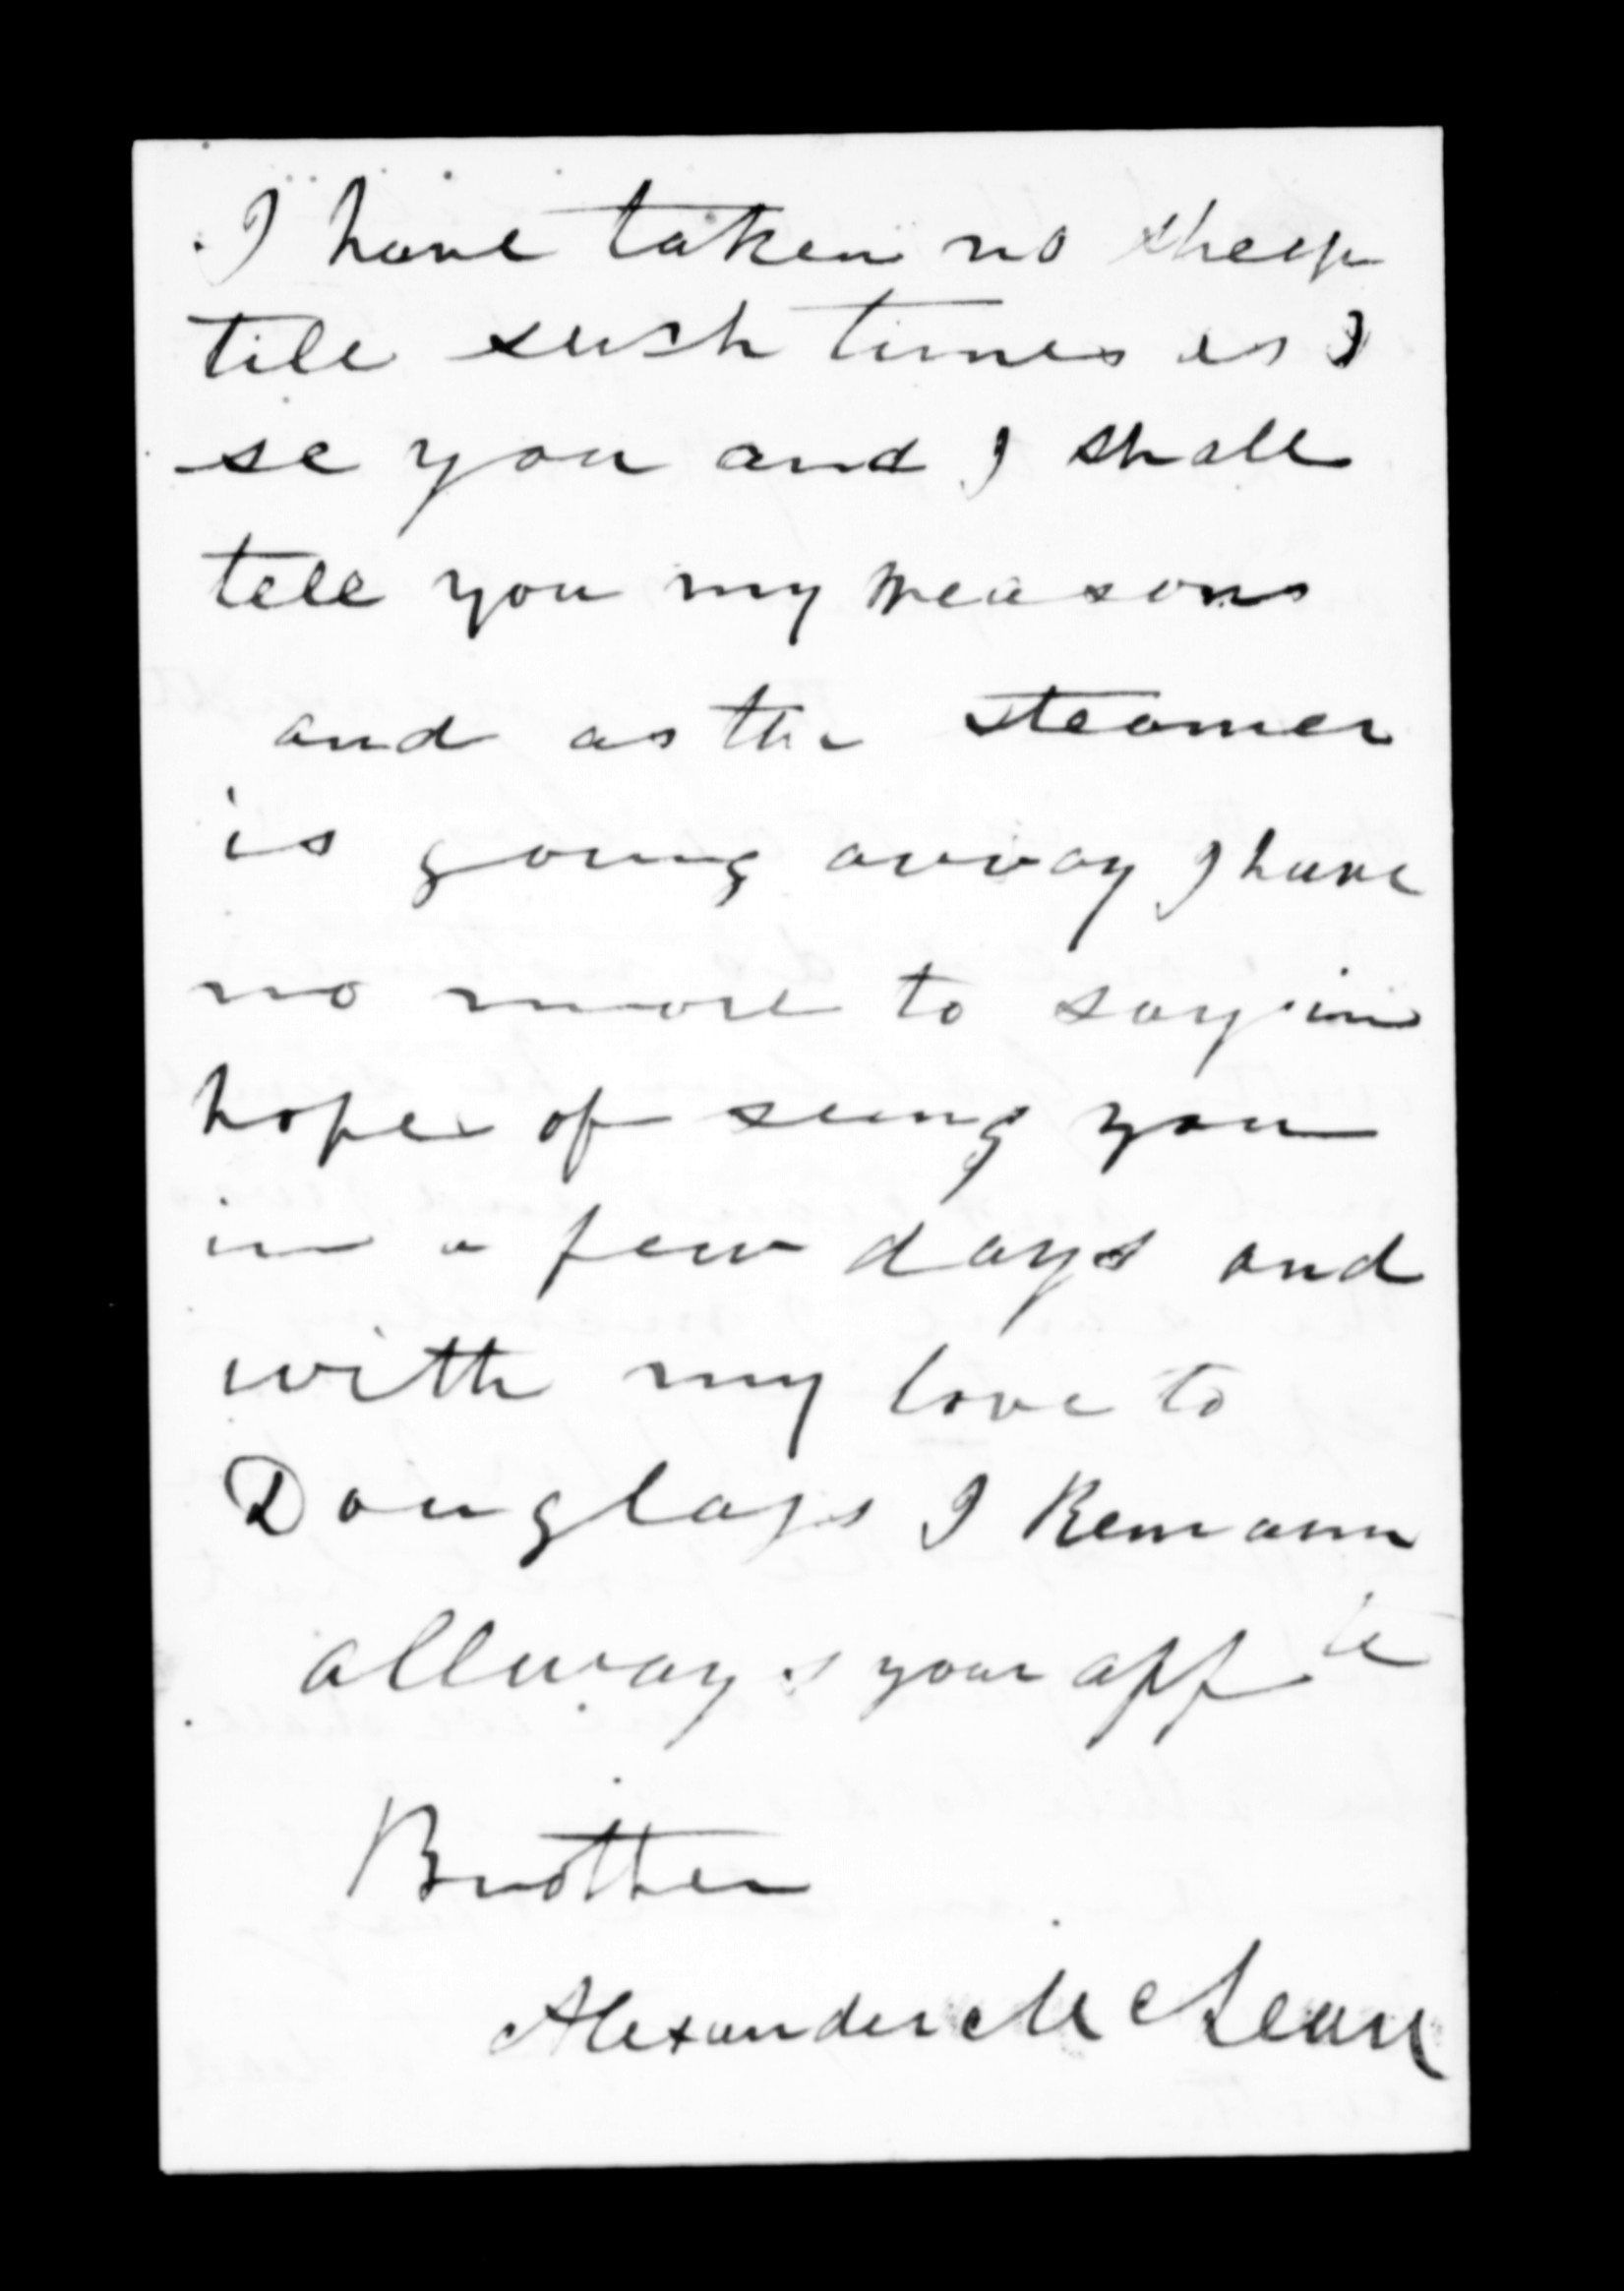 I have taken no sheep
till such times as I
se you and I shall
tell you my reasons
and as the steamer
is going away I have
no more to say in
hope of seeing you
in a few days and
with my love to
Douglass I Remain
allways your aff te
Brother
Alexander McLean